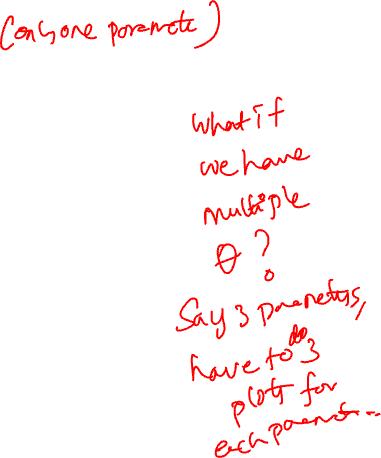 (only one parameter)
what if
we have
multiple
θ?
Say 3 parameters,
have to do 3
plots for
each parameter...